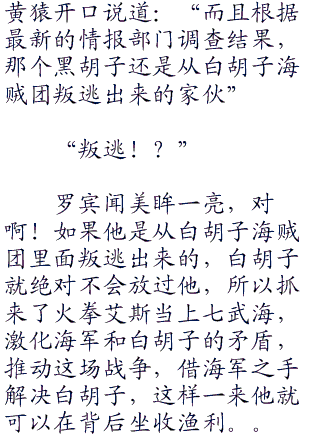 黄猿开口说道：“而且根据
最新的情报部门调查结果，
那个黑胡子还是从白胡子海
贼团叛逃出来的家伙”
“叛逃！？”
罗宾闻美眸一亮，对
啊！如果他是从白胡子海贼
团里面叛逃出来的，白胡子
就绝对不会放过他，所以抓
来了火拳艾斯当上七武海，
激化海军和白胡子的矛盾，
推动这场战争，借海军之手
解决白胡子，这样一来他就
可以在背后坐收渔利。。